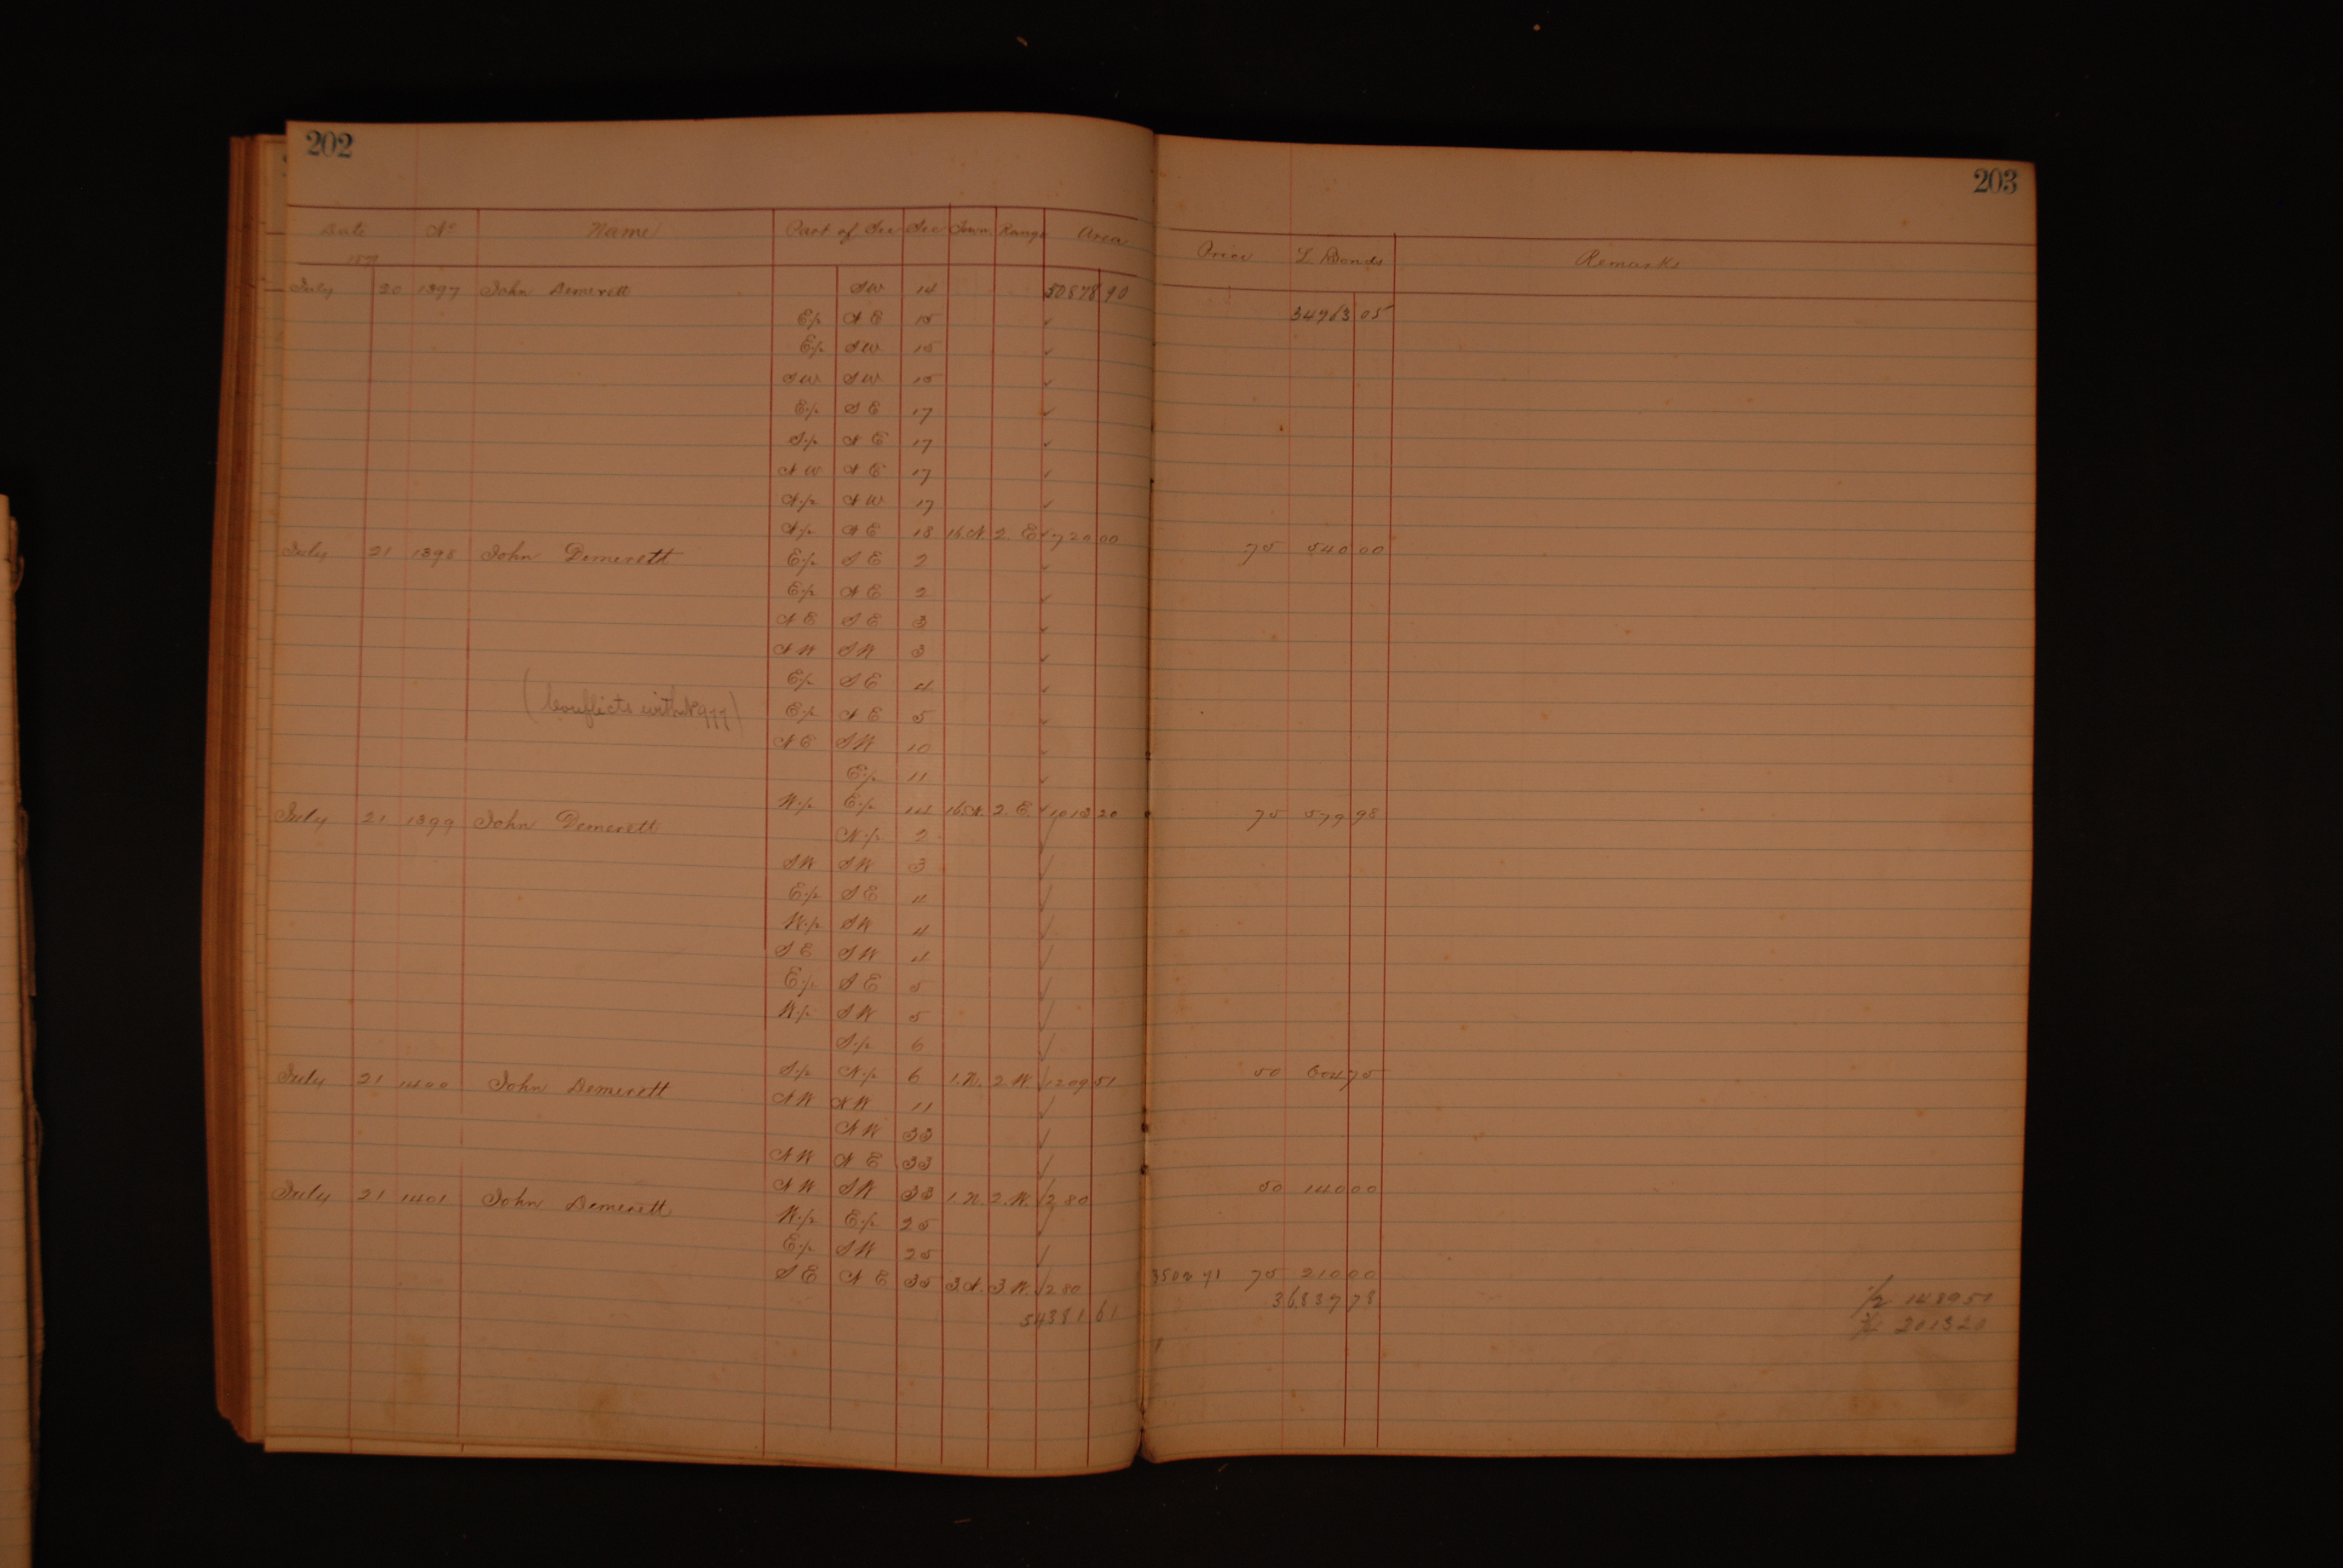 202
203
Date No Name Part of Sec Sec Town. Range Area Price L. Bonds Remarks
1871
July 20 1397 John Demerett SW 14 50878 90 34963 05
E½ NE 15
E½ SW 15
SW SW 15
E½ SE 17
S½ NE 17
NW NE 17
N½ NW 17
N½ NE 18 16 N. 2. E 720 00 75 540 00
July 21 1398 John Demerett E½ SE 2
E½ NE 2
NE SE 3
NW SW 3
E½ SE 4
(Conflicts with No 977) E½ NE 5
NE SW 10
E½ 11
W½ E½ 14 16 N. 2. E. 1013 20 75 579 98
July 21 1399 John Demerett N½ 2
SW SW 3
E½ SE 4
W½ SW 4
SE SW 4
E½ SE 5
W½ SW 5
S½ 6
S½ N½ 6 1. N. 2 W 1209 51 50 604 75
July 21 1400 John Demerett NW NW 11
NW 33
NW NE 33
NW SW 33 1. N. 2. W. 280 50 140 00
July 21 1401 John Demerett W½ E½ 25
E½ SW 25
SE NE 35 3 N. 3 W. 280 3502 71 75 210 00
54381 61 36837 78
½ 1489 51
¾ 2013 20